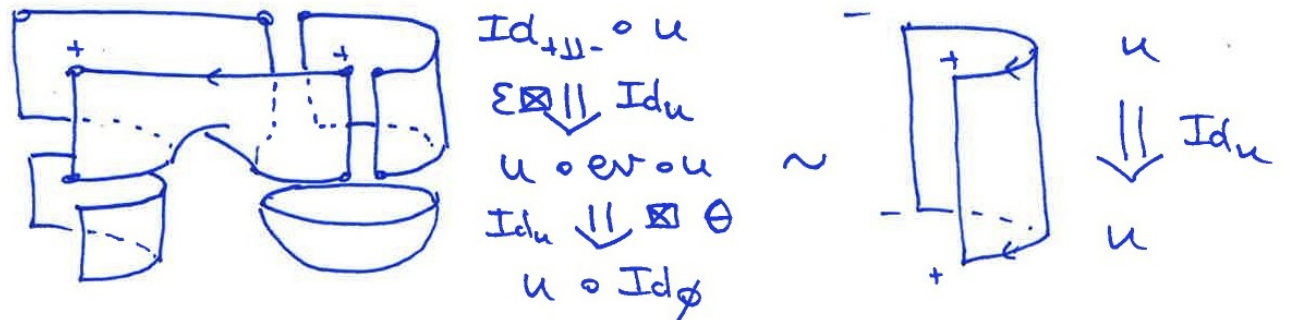 +
+
Id₊⊔₋ ∘ u
ε⊠ ⇓ Id_u
u ∘ ev ∘ u
Id_u ⇓ ⊠ θ
u ∘ Id_∅
~
−
+
−
+
u
⇓ Id_u
u